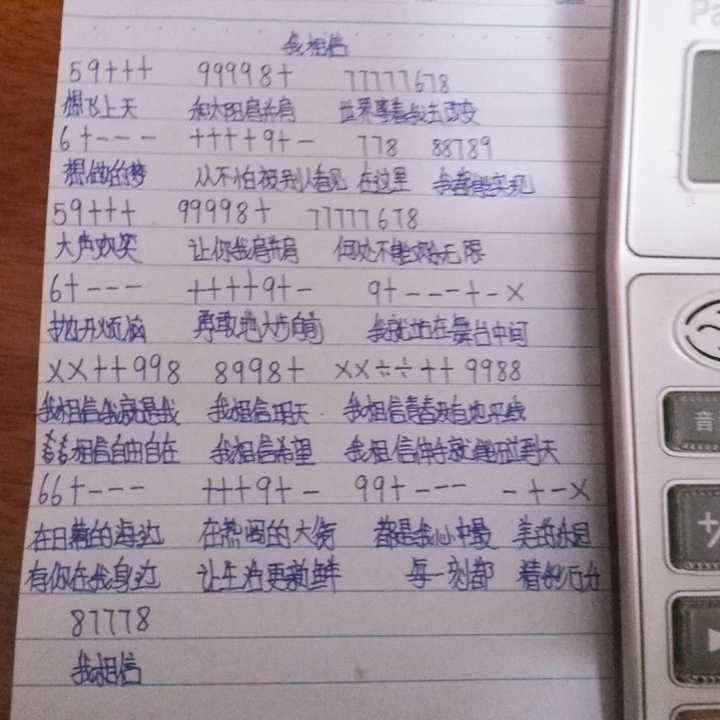 我相信
59+++ 99998+ 77777678
想飞上天 和太阳肩并肩 世界等着我去改变
6+--- ++++9+- 778 88789
想做的梦 从不怕被别人看见 在这里 我都能实现
59+++ 99998+ 77777678
大声欢笑 让你我肩并肩 何处不能欢乐无限
6+--- ++++9+- 9+---+-×
抛开烦恼 勇敢地大步向前 我就站在舞台中间
××++998 8998+ ××÷÷++9988
我相信我就是我 我相信明天 我相信青春没有地平线
我相信自由自在 我相信希望 我相信伸手就能碰到天
66+--- +++9+- 99+--- -+-×
在日落的海边 在热闹的大街 都是我心中最 美的乐园
有你在我身边 让生活更新鲜 每一刻都 精彩万分
87778
我相信
Pa
音
+/